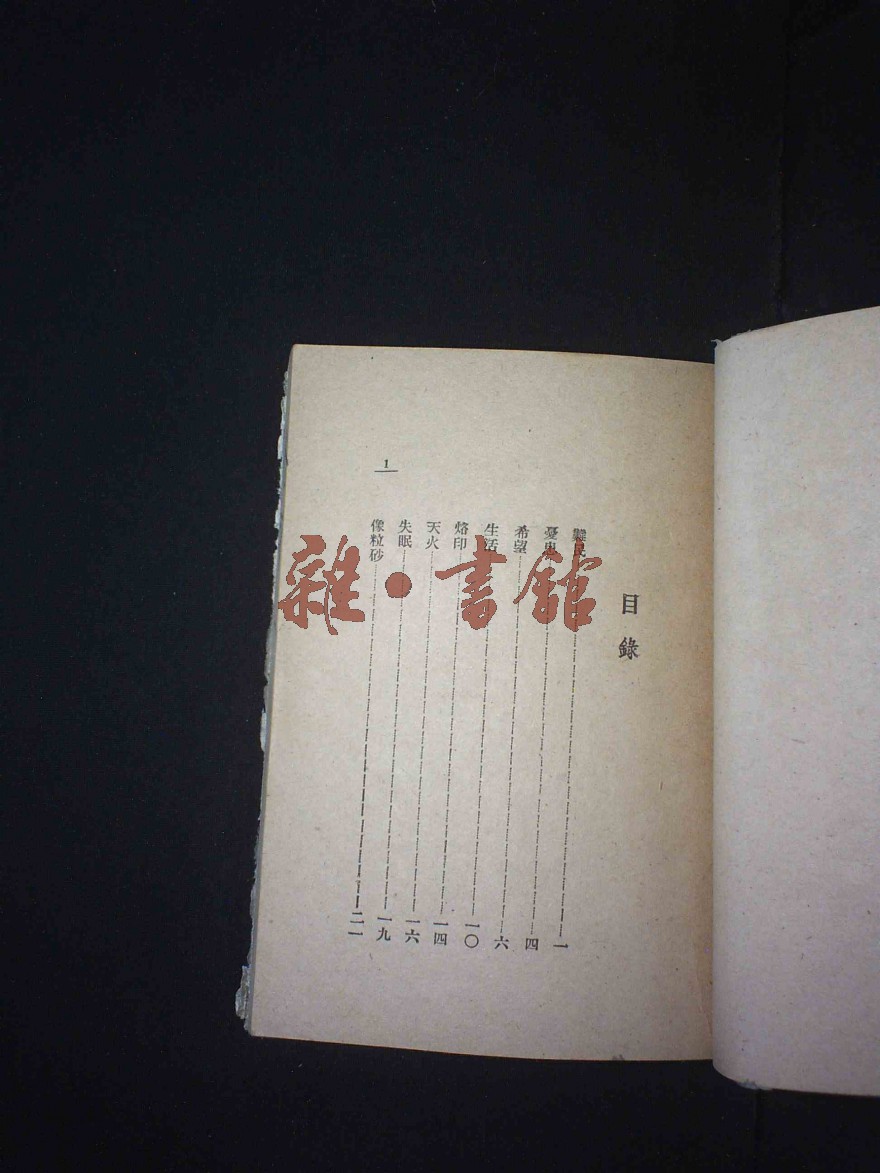 目錄
難民 一
憂患 四
希望 六
生活 一〇
烙印 一四
天火 一六
失眠 一九
像粒砂 二一
1
雜·書館